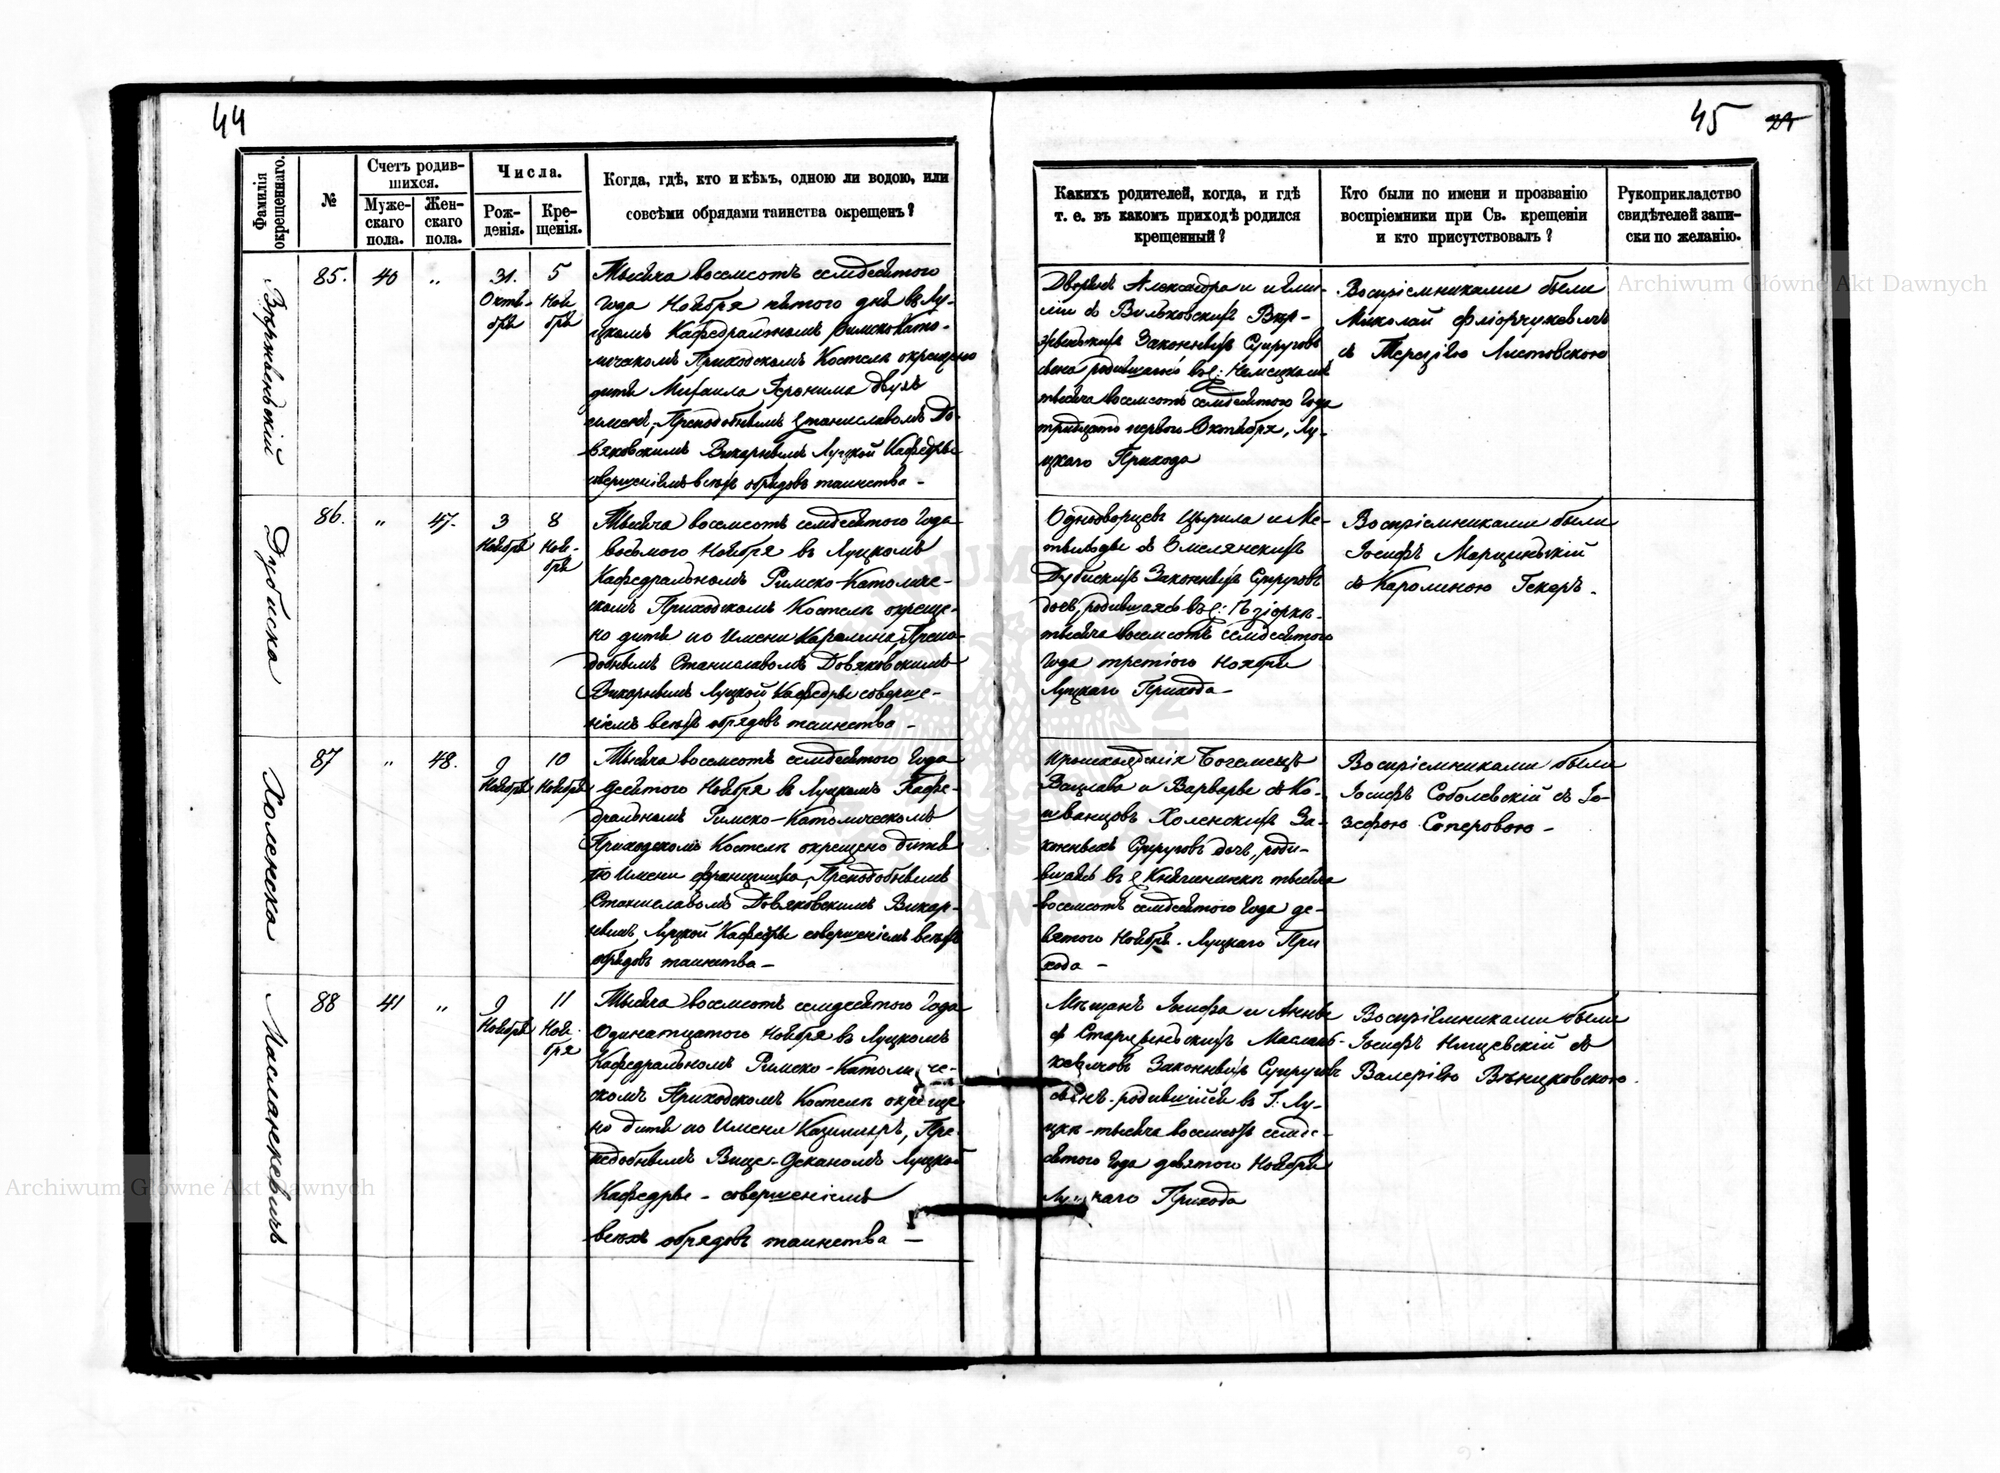 44
Фамилія окрещеннаго.
№
Счетъ родив-
шихся.
Муже-
скаго
пола.
Жен-
скаго
пола.
Числа.
Рож-
денія.
Кре-
щенія.
Когда, гдѣ, кто и кѣмъ, одною ли водою, или
совсѣми обрядами таинства окрещенъ?
85.
40
"
31.
Октя-
бря
5
Ноя
бря
Тысяча восемсотъ семдесятого
года Ноября пятого дня въ Лу-
цкомъ Кафедральномъ Римско Като-
лическомъ Приходскомъ Костелѣ окрещено
дитя Михаила Геронима двухъ
именъ, Преподобнымъ Станиславомъ До-
вяковскимъ Викарнымъ Луцкой Кафедры
совершеніемъ всѣхъ обрядовъ таинства -
Дубиска
86.
"
47.
3
Ноября
8
Ноя-
бря
Тысяча восемсотъ семдесятого Года
восьмого Ноября въ Луцкомъ
Кафедральномъ Римско-Католиче-
скомъ Приходскомъ Костелѣ окреще-
но дитя по Имени Каролина, Препо-
добнымъ Станиславомъ Довяковскимъ
Викарнымъ Луцкой Кафедры соверше-
ніемъ всѣхъ обрядовъ таинства -
Холенска
87
"
48.
9
Ноября
10
Ноября
Тысяча восемсотъ семдесятого Года
десятого Ноября въ Луцкомъ Кафе-
дральномъ Римско-Католическомъ
Приходскомъ Костелѣ окрещено дитя
по Имени Францишка, Преподобнымъ
Станиславомъ Довяковскимъ Викар-
нымъ Луцкой Кафедры совершеніемъ всѣхъ
обрядовъ таинства -
Маслянкевичъ
88
41
"
9
Ноября
11
Ноя-
бря
Тысяча восемсотъ семдесятого Года
Одинатцатого Ноября въ Луцкомъ
Кафедральномъ Римско-Католиче-
скомъ Приходскомъ Костелѣ окреще
но дитя по Имени Казимиръ, Пре-
подобнымъ Вице-Деканомъ Луцкой
Кафедры - совершеніемъ
всѣхъ обрядовъ таинства -
45
Какихъ родителей, когда, и гдѣ
т. е. въ какомъ приходѣ родился
крещенный?
Кто были по имени и прозванію
воспріемники при Св. крещеніи
и кто присутствовалъ?
Рукоприкладство
свидѣтелей запи-
ски по желанію.
Дворянъ Александра и
съ Вильковскихъ
Законныхъ Супруговъ
сына родившагося въ
тысяча восемсотъ семдесятого Года
тридцать первого Октября, Лу-
цкаго Прихода
Воспріемниками были
Николай Фліорчукевичъ
съ Терезіею Листовскою
Однодворцевъ Цырила и Ме-
съ Омелянскихъ
Дубискихъ Законныхъ Супруговъ
дочь, родившаяся въ
тысяча восемсотъ семдесятого
Года третіого Ноября
Луцкаго Прихода -
Воспріемниками были
Іосифъ Марциньскій
съ Каролиною Гекеръ.
Происхожденія Богемецъ
Вацлава и Варвары съ Ко-
Холенскихъ За-
конныхъ Супруговъ дочь, роди-
вшаяся въ с Княгининкѣ тысяча
восемсотъ семдесятого Года де-
вятого Ноября. Луцкаго При
хода -
Воспріемниками были
Іосифъ Соболевскій съ Іо-
зефою Соперовою -
Мѣщанъ Іосифа и Анны
съ Маслян-
Законныхъ Супруговъ
сынъ родившійся въ Г. Лу-
цкѣ - тысяча восемсотъ семде-
сятого Года девятого Ноября
Луцкаго Прихода
Воспріемниками были
Іосифъ съ
Валеріею
Archiwum Główne Akt Dawnych
Archiwum Główne Akt Dawnych